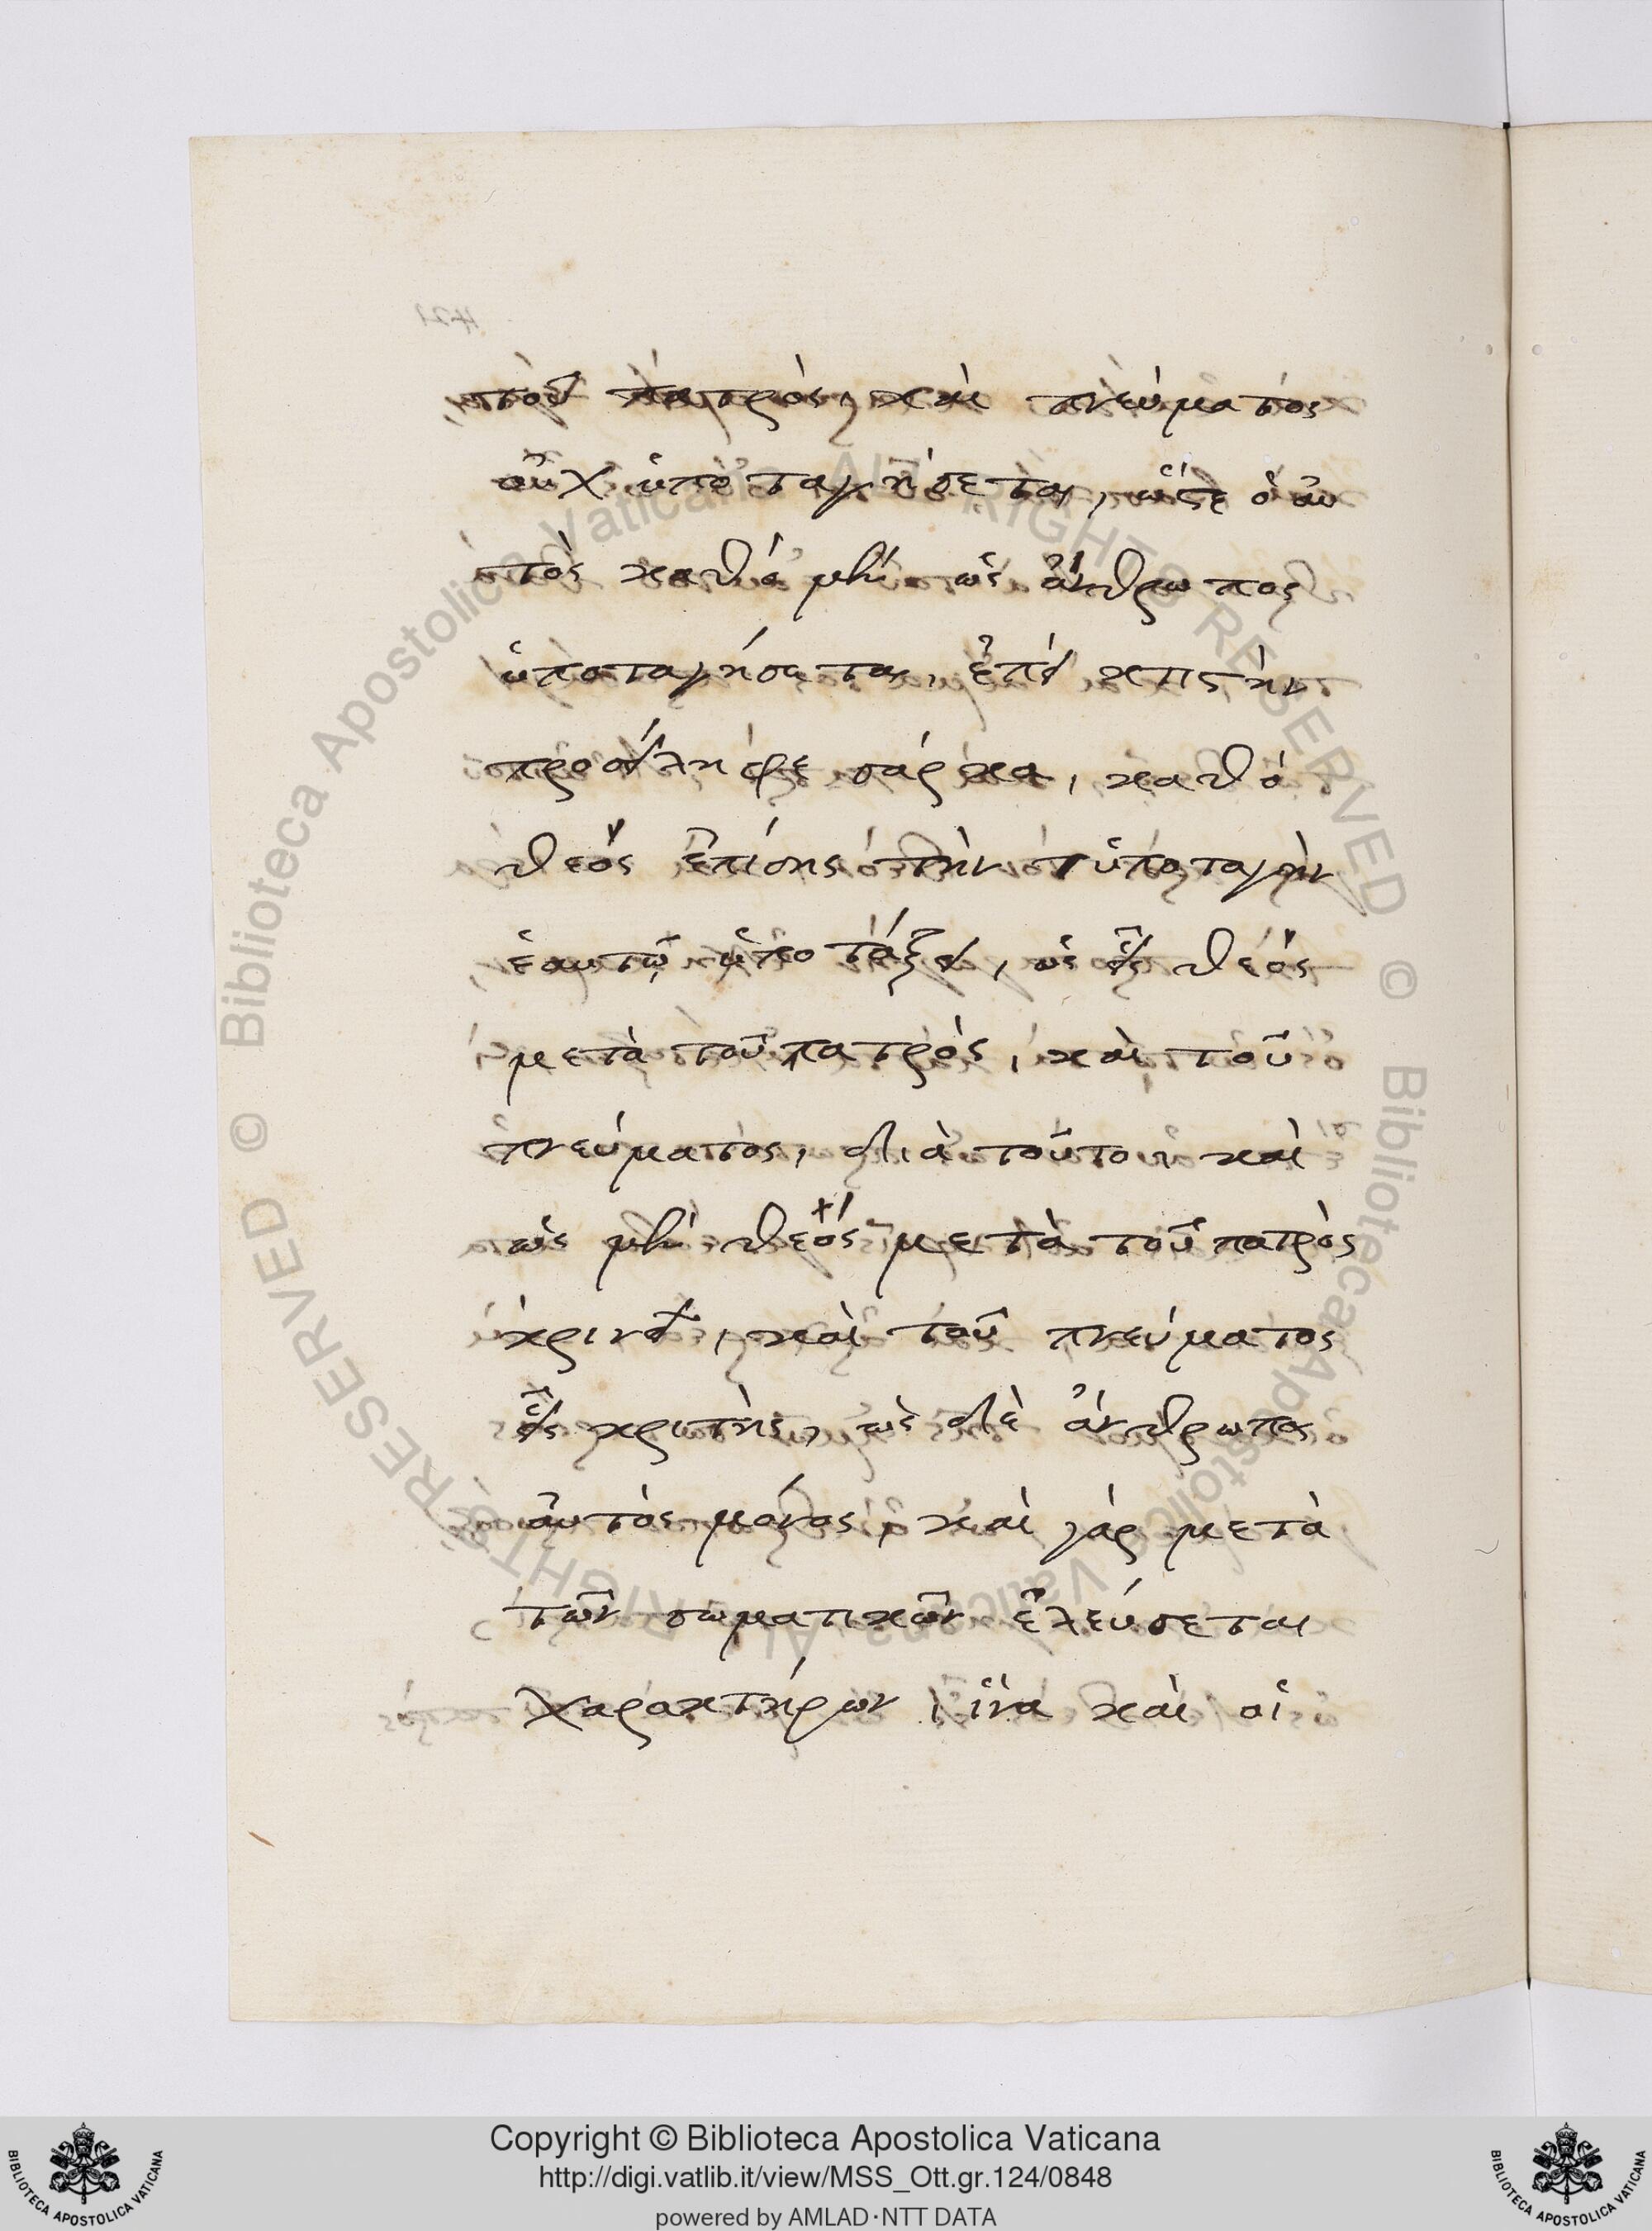 τοῦ πατρός, καὶ πνεύματος
οὐχ ὑποταγήσεται, ὥστε ὁ αὐ
τὸς καθὸ μὲν ὡς ἄνθρωπος
ὑποταγήσεται, ἐπεὶ κτιστὴν
προσείληφε σάρκα, καθὸ
θεὸς ἐπίσης τὴν ὑποταγὴν
ἑαυτῷ ὑποτάξει, ὡς εἷς θεὸς
μετὰ τοῦ πατρός, καὶ τοῦ
πνεύματος, διὰ τοῦτο καὶ
ὡς μὲν θεὸς μετὰ τοῦ πατρὸς
κρινεῖ, καὶ τοῦ πνεύματος
εἷς κριτὴς, ὡς δὲ ἄνθρωπος
αὐτὸς μόνος, καὶ γὰρ μετὰ
τῶν σωματικῶν ἐλεύσεται
χαρακτήρων, ἵνα καὶ οἱ
Copyright © Biblioteca Apostolica Vaticana
http://digi.vatlib.it/view/MSS_Ott.gr.124/0848
powered by AMLAD·NTT DATA